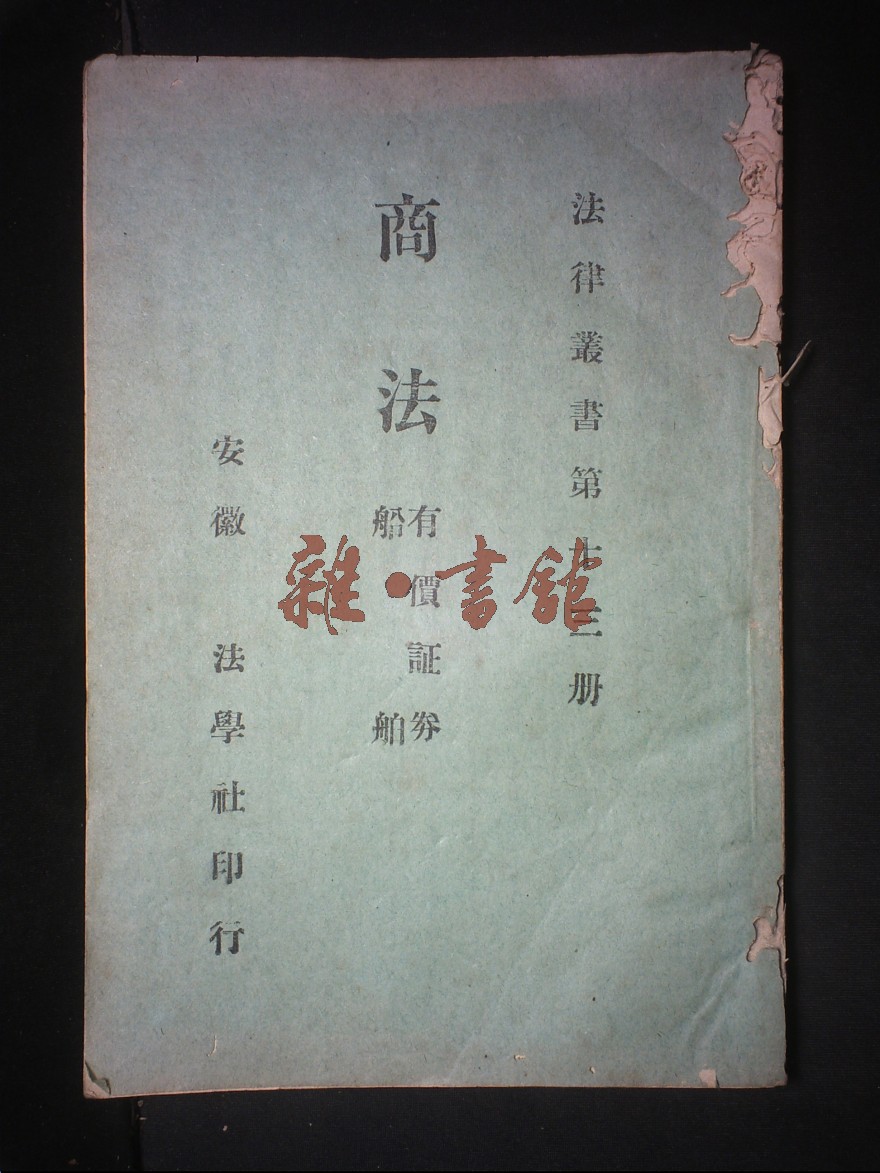 法律叢書第十三册
商法
有價証券
船舶
安徽 法學社印行
雜·書館